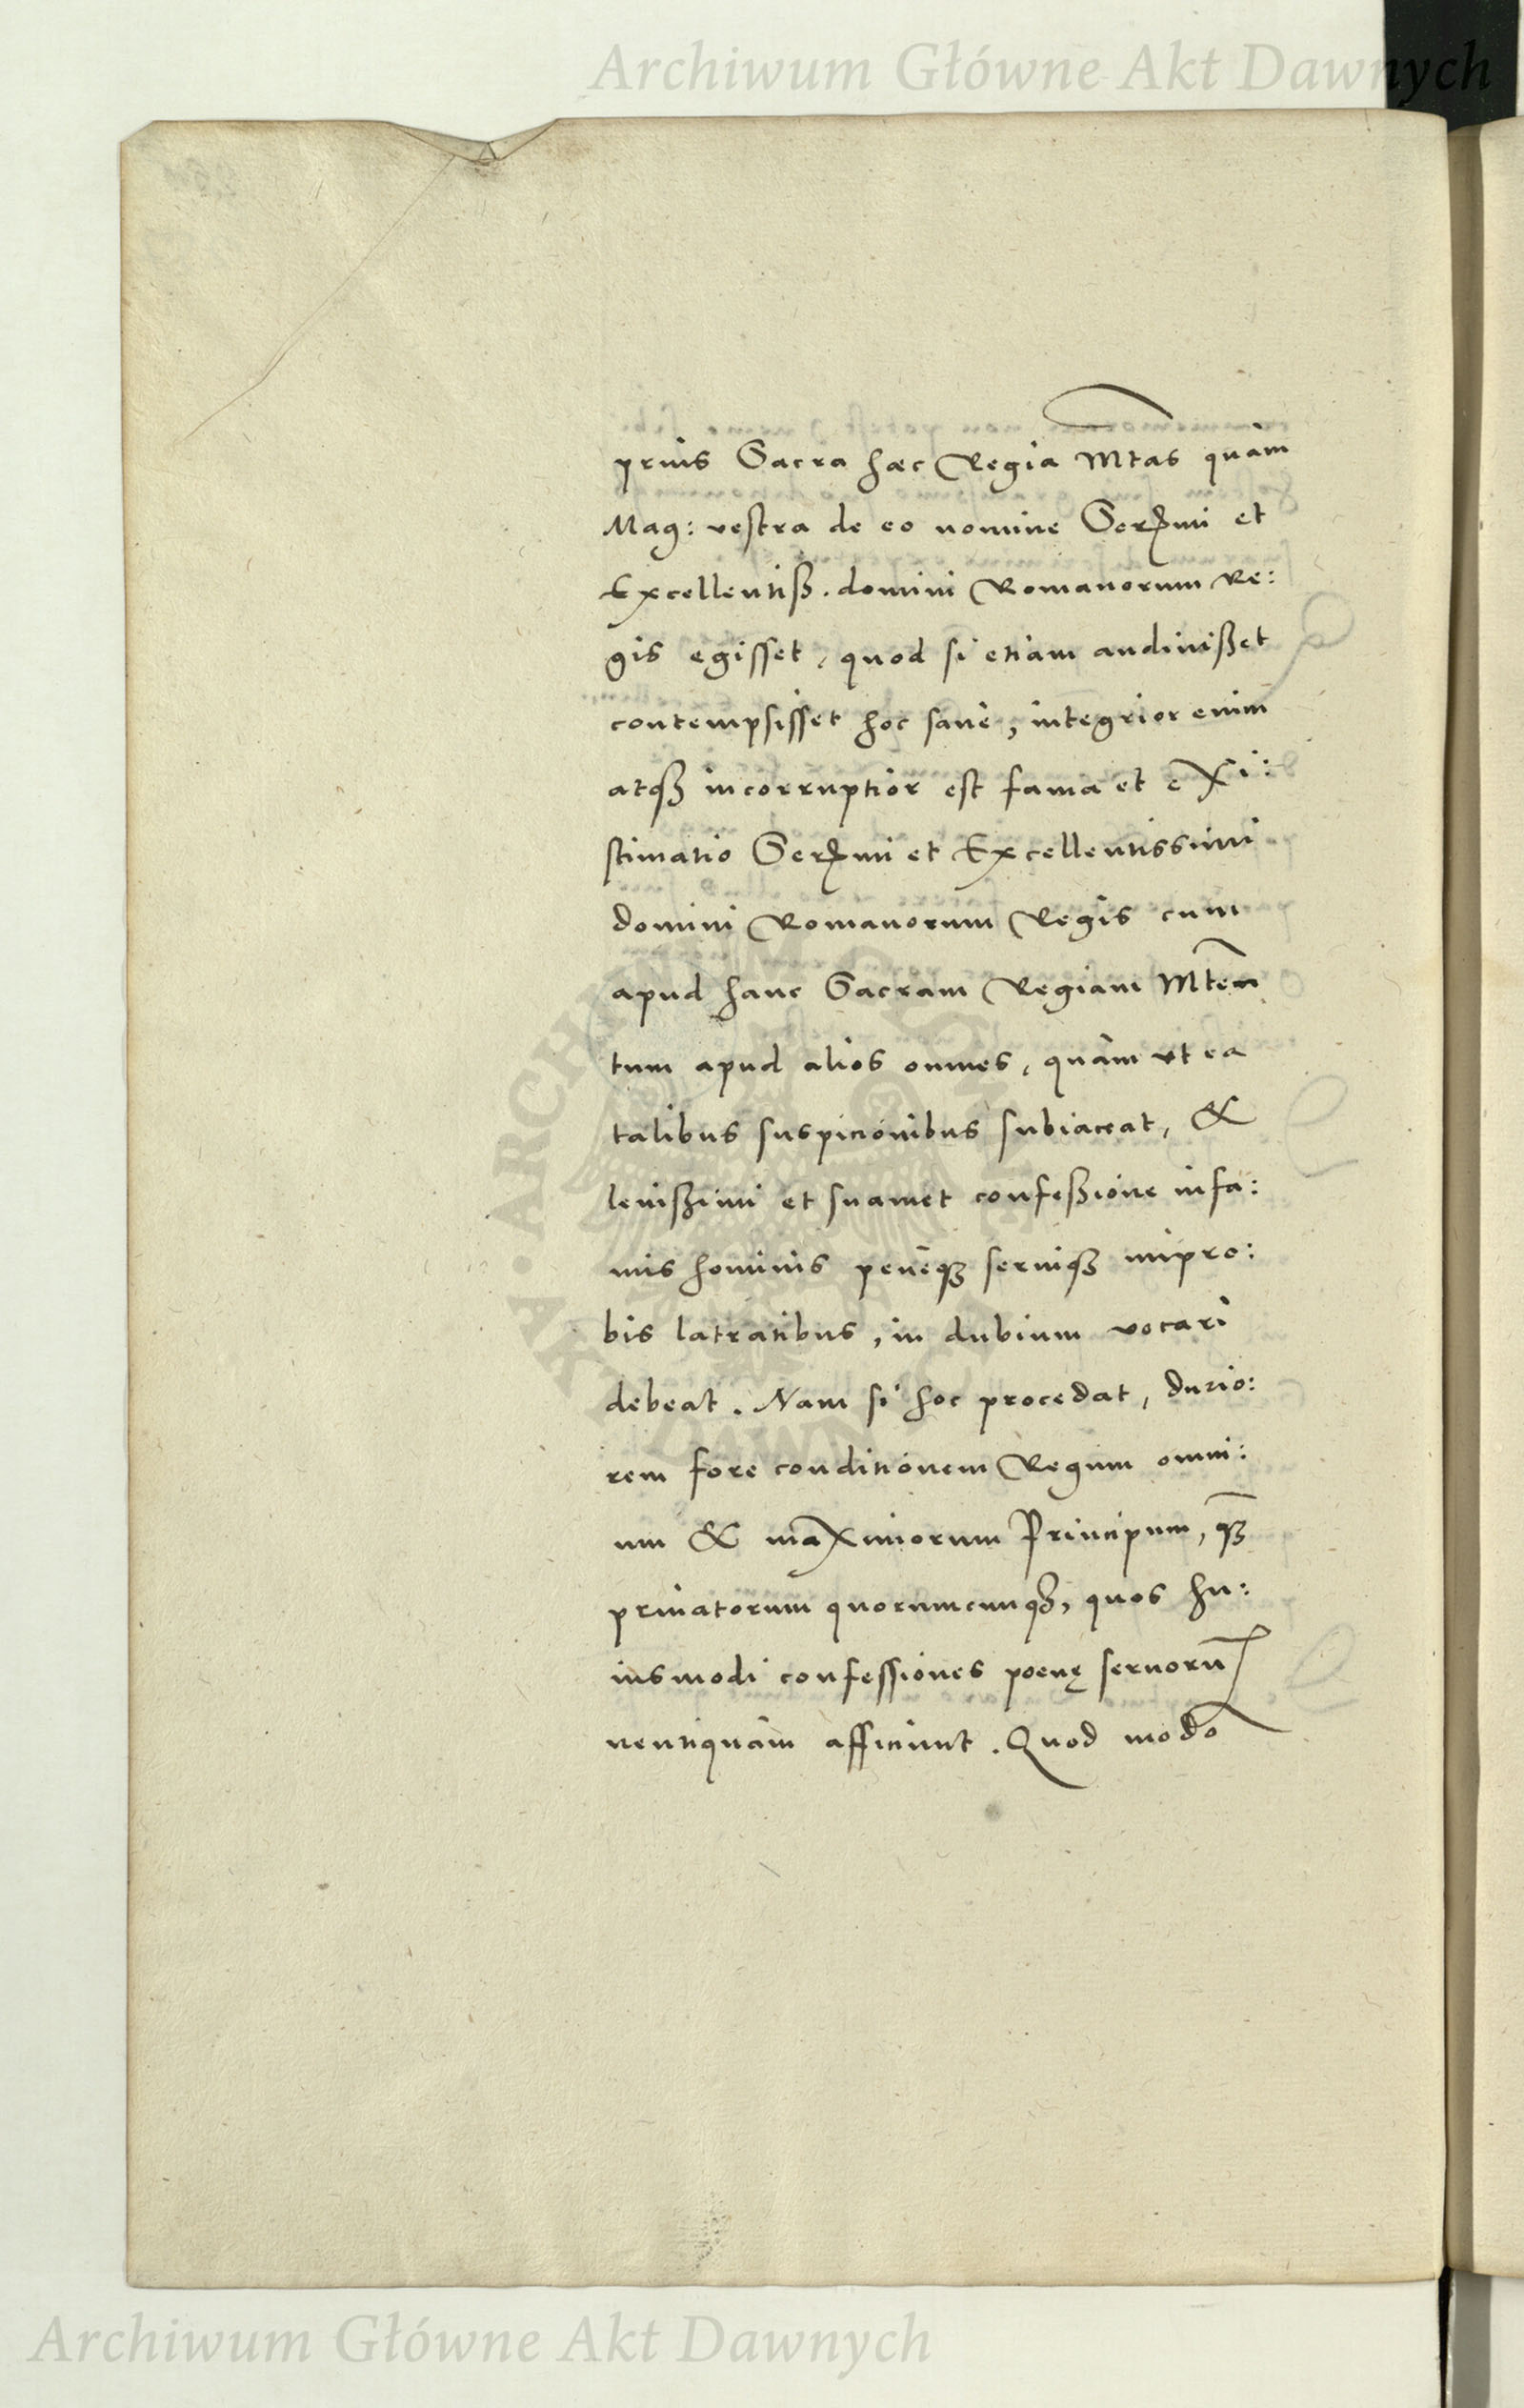 Archiwum Główne Akt Dawnych
prius Sacra haec Regia Mtas quàm
Mag: vestra de eo nomine Serᵐⁱ et
Excellentiß. domini Romanorum Re:
gis egisset, quod si etiam audiuißet
contempsisset hoc sanè, integrior enim
atqȝ incorruptior est fama et exi:
stimatio Serᵐⁱ et Excellentissimi
domini Romanorum Regis cum
apud hanc Sacram Regiam Mtem
tum apud alios omnes, quàm vt ea
talibus suspicionibus subiaceat, &
leuißimi et suamet confeßione infa:
mis hominis penèqȝ seruiqȝ impro:
bis latratibus, in dubium vocari
debeat. Nam si hoc procedat, durio:
rem fore conditionem Regum omni:
um & maximorum Principum, qȝ̄
priuatorum quorumcunqȝ, quos hu:
iusmodi confessiones poenę seruorū
neutiquàm afficiunt. Quod modo
ARCHIWUM GŁÓWNE AKT DAWNYCH
Archiwum Główne Akt Dawnych